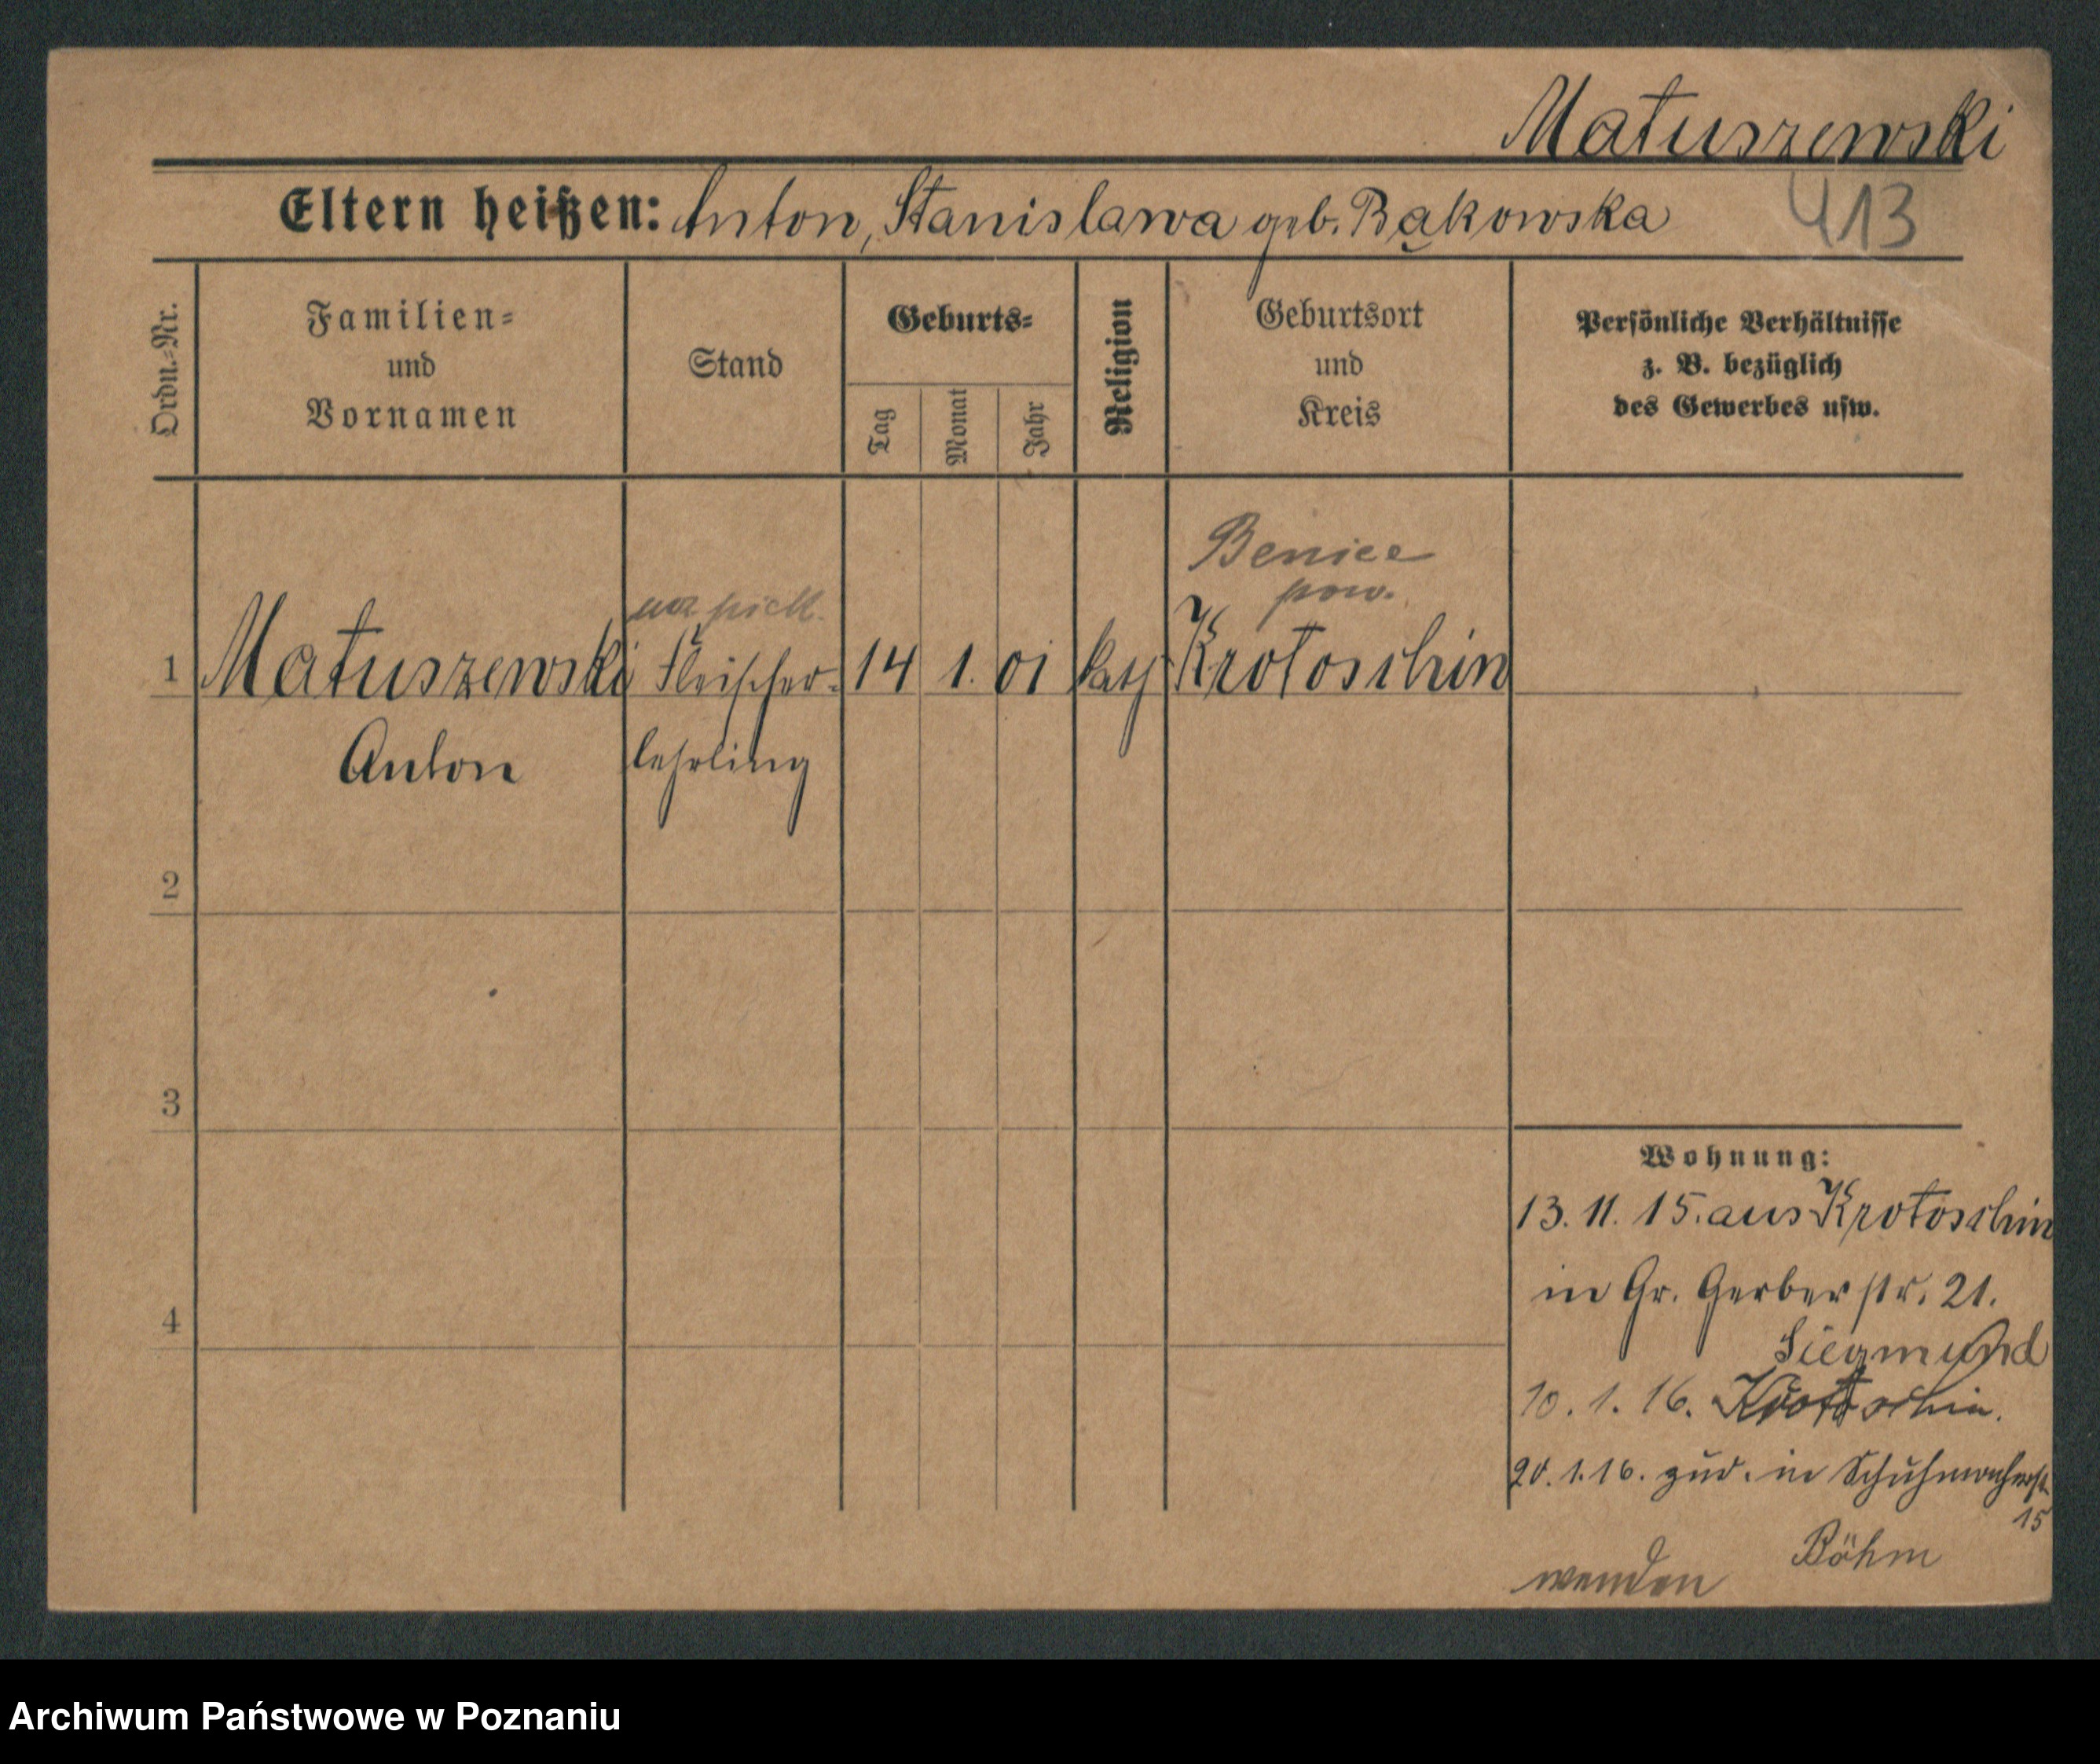 Matuszewski
Eltern heißen: Anton, Stanislawa geb. Bąkowska 413
Ordn.-Nr.
Familien-
und
Vornamen
Stand
Geburts-
Tag
Monat
Jahr
Religion
Geburtsort
und
Kreis
Persönliche Verhältnisse
z. B. bezüglich
des Gewerbes usw.
Benice
pow.
1 Matuszewski Fleischer- 14 1. 01 kath Krotoschin
Anton lehrling
2
3
4
Wohnung:
13. 11. 15. aus Krotoschin
in Gr. Gerberstr. 21.
Siegmund
10. 1. 16. Krotoschin.
20. 1. 16. zur. in Schuhmacherstr.
15
Böhm
wenden
Archiwum Państwowe w Poznaniu